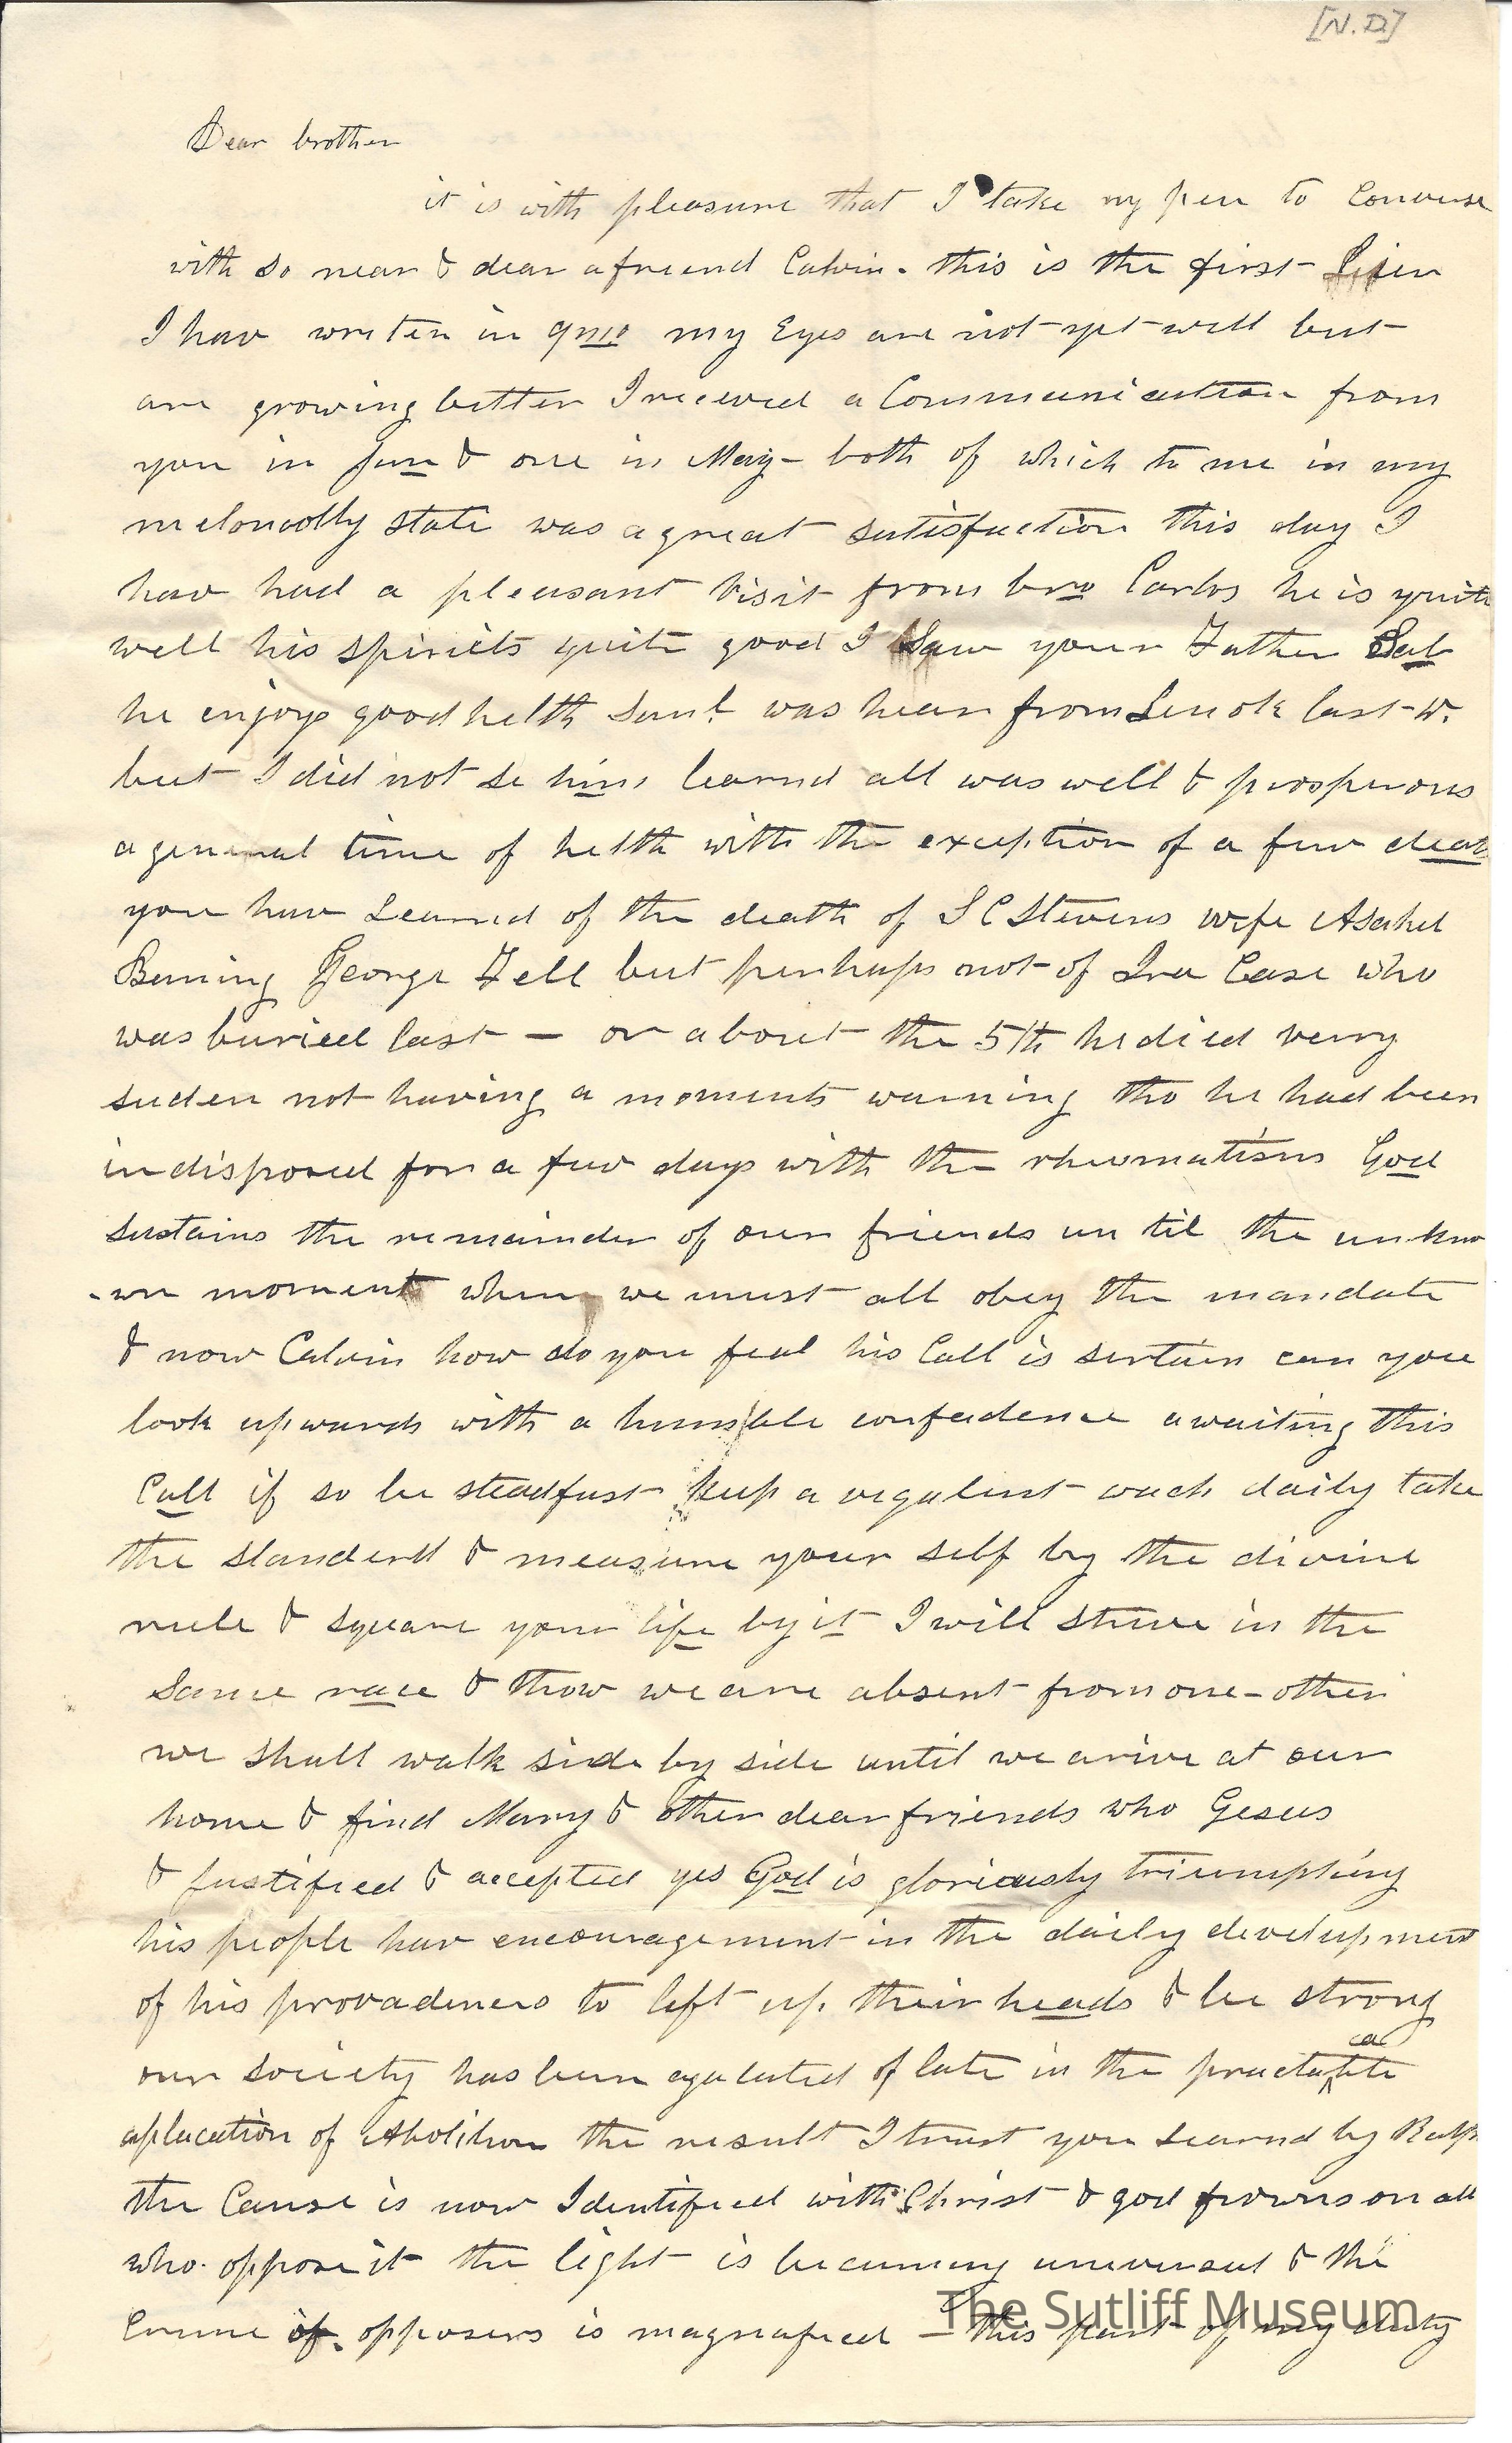 [N.D]
Dear brother
it is with pleasure that I take my pen to Converse
with so near & dear a friend Calvin. this is the first
I hav writen in my Eyes are not yet well but
are growing better I receved a Communication from
you in Jun & one in May - both of which to me in my
meloncolly state was a great satisfaction this day I
hav had a pleasant visit from bro Carlos he is quite
well his spiriets quite good I Saw your Father Sab
he enjoys good helth Saml was hear from Lenok last w.
but I did not se him learnd all was well & prosperous
a general time of helth with the exception of a few deat
you hav Learnd of the death of S C Stevens wife Asahel
Bening George Fell but perhaps not of Ira Case who
was buried last — or about the 5th he died verry
suden not having a moments warning tho he had been
indisposed for a few days with the rhumatism God
sustains the remainder of our friends un til the unkno
-wn moment when we must all obey the mandate
& now Calvin how do you feal his Call is sertain can you
look upwards with a humble confedence awaiting this
Call if so be steadfast keep a vegalent wach daily take
the standerd & measure your self by the divine
rule & square your life by it I will strive in the
Same race & thow we are absent from one-other
we shall walk side by side until we arive at our
home & find Mary & other dear friends who Gesus
& Justified & accepted yes God is gloriously triumphing
his people hav encouragement in the daily development
of his provadences to left up their heads & be strong
our society has been agatated of late in the
ca
practable
aplacation of Abolition the result I trust you Learnd by
the Cause is now Identified with Christ & god frowns on all
who oppose it the light is becuming universal & the
Crime of opposers is magnafied — this part of my duty
The Sutliff Museum